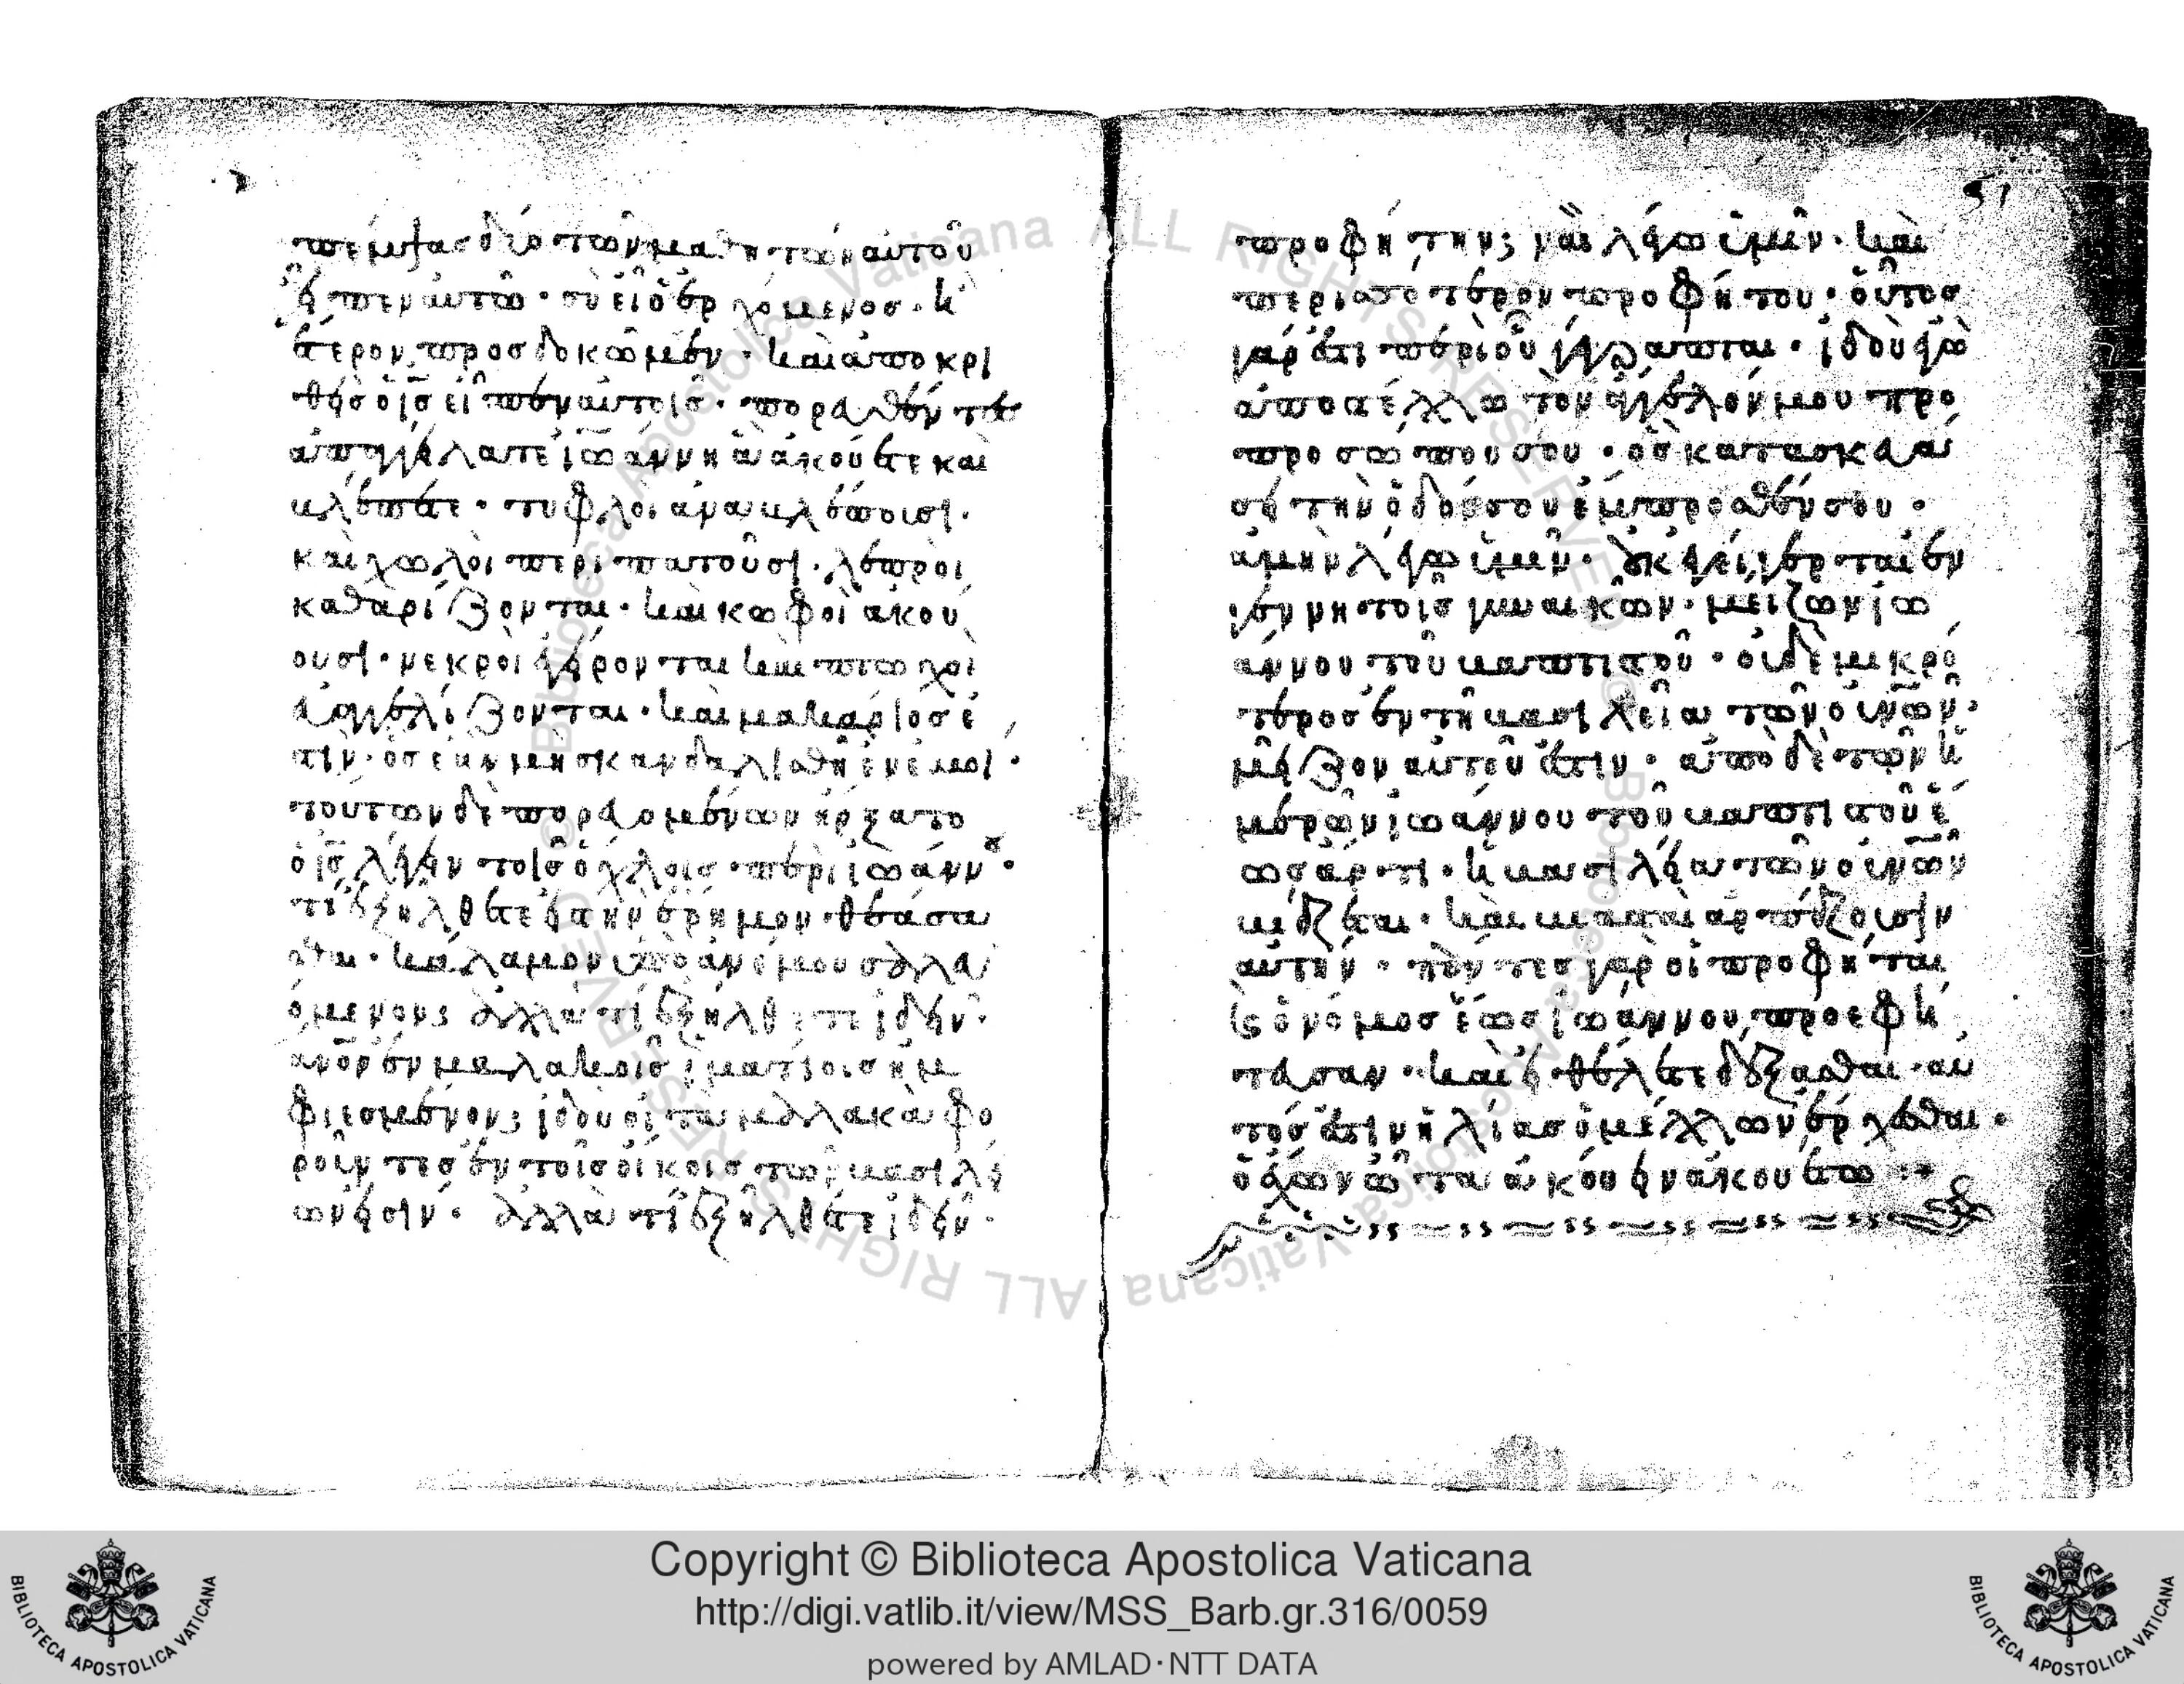 πέμψας δύο τῶν μαθητῶν αὐτοῦ
εἶπεν αὐτῶ· σὺ εἶ ὁ ἐρχόμενος· ἢ
ἕτερον προσδοκῶμεν· καὶ ἀποκρι
θεὶς ὁ ι̅ς̅ εἶπεν αὐτοῖς· πορευθέντες
ἀπαγγείλατε ἰωάννη ἃ ἀκούετε καὶ
βλέπετε· τυφλοὶ ἀναβλέπουσι·
καὶ χωλοὶ περιπατοῦσι· λεπροὶ
καθαρίζονται· καὶ κωφοὶ ἀκού
ουσι· νεκροὶ ἐγείρονται καὶ πτωχοὶ
εὐαγγελίζονται· καὶ μακάριός ἐ
στιν· ὃς ἐὰν μὴ σκανδαλισθῆ ἐν ἐμοί·
τούτων δὲ πορευομένων ἤρξατο
ὁ ι̅ς̅ λέγειν τοῖς ὄχλοις περὶ ἰωάννου·
τί ἐξήλθετε εἰς τὴν ἔρημον θεάσα
σθαι· κάλαμον ὑπὸ ἀνέμου σαλευ
όμενον; ἀλλὰ τί ἐξήλθετε ἰδεῖν·
ἄνθρωπον ἐν μαλακοῖς ἱματίοις ἠμ
φιεσμένον; ἰδοὺ οἱ τὰ μαλακὰ φο
ροῦντες ἐν τοῖς οἴκοις τῶν βασιλέ
ων εἰσίν· ἀλλὰ τί ἐξήλθετε ἰδεῖν·
51
προφήτην; ναὶ λέγω ὑμῖν· καὶ
περισσότερον προφήτου· οὗτος
γάρ ἐστι περὶ οὗ γέγραπται· ἰδοὺ ἐγὼ
ἀποστέλλω τὸν ἄγγελόν μου πρὸ
προσώπου σου· ὃς κατασκευά
σει τὴν ὁδόν σου ἔμπροσθέν σου·
ἀμὴν λέγω ὑμῖν· οὐκ ἐγείγερται ἐν
γεννητοῖς γυναικῶν· μείζων ἰω
άννου τοῦ βαπτιστοῦ· ὁ δὲ μικρό
τερος ἐν τῆ βασιλεία τῶν ο̅υ̅ν̅ῶν·
μεῖζον αὐτοῦ ἐστιν· ἀπὸ δὲ τῶν ἡ
μερῶν ἰωάννου τοῦ βαπτιστοῦ ἕ
ως ἄρτι· ἡ βασιλεία τῶν ο̅υ̅ν̅ῶν
βιάζεται· καὶ βιασταὶ ἁρπάζουσιν
αὐτήν· πάντες γὰρ οἱ προφῆται
καὶ ὁ νόμος ἕως ἰωάννου προεφή
τευσαν· καὶ εἰ θέλετε δέξασθαι· αὐ
τός ἐστιν ἠλίας ὁ μέλλων ἔρχεσθαι·
ὁ ἔχων ὦτα ἀκούειν ἀκουέτω :+
Copyright © Biblioteca Apostolica Vaticana
http://digi.vatlib.it/view/MSS_Barb.gr.316/0059
powered by AMLAD·NTT DATA
BIBLIOTECA APOSTOLICA VATICANA
BIBLIOTECA APOSTOLICA VATICANA